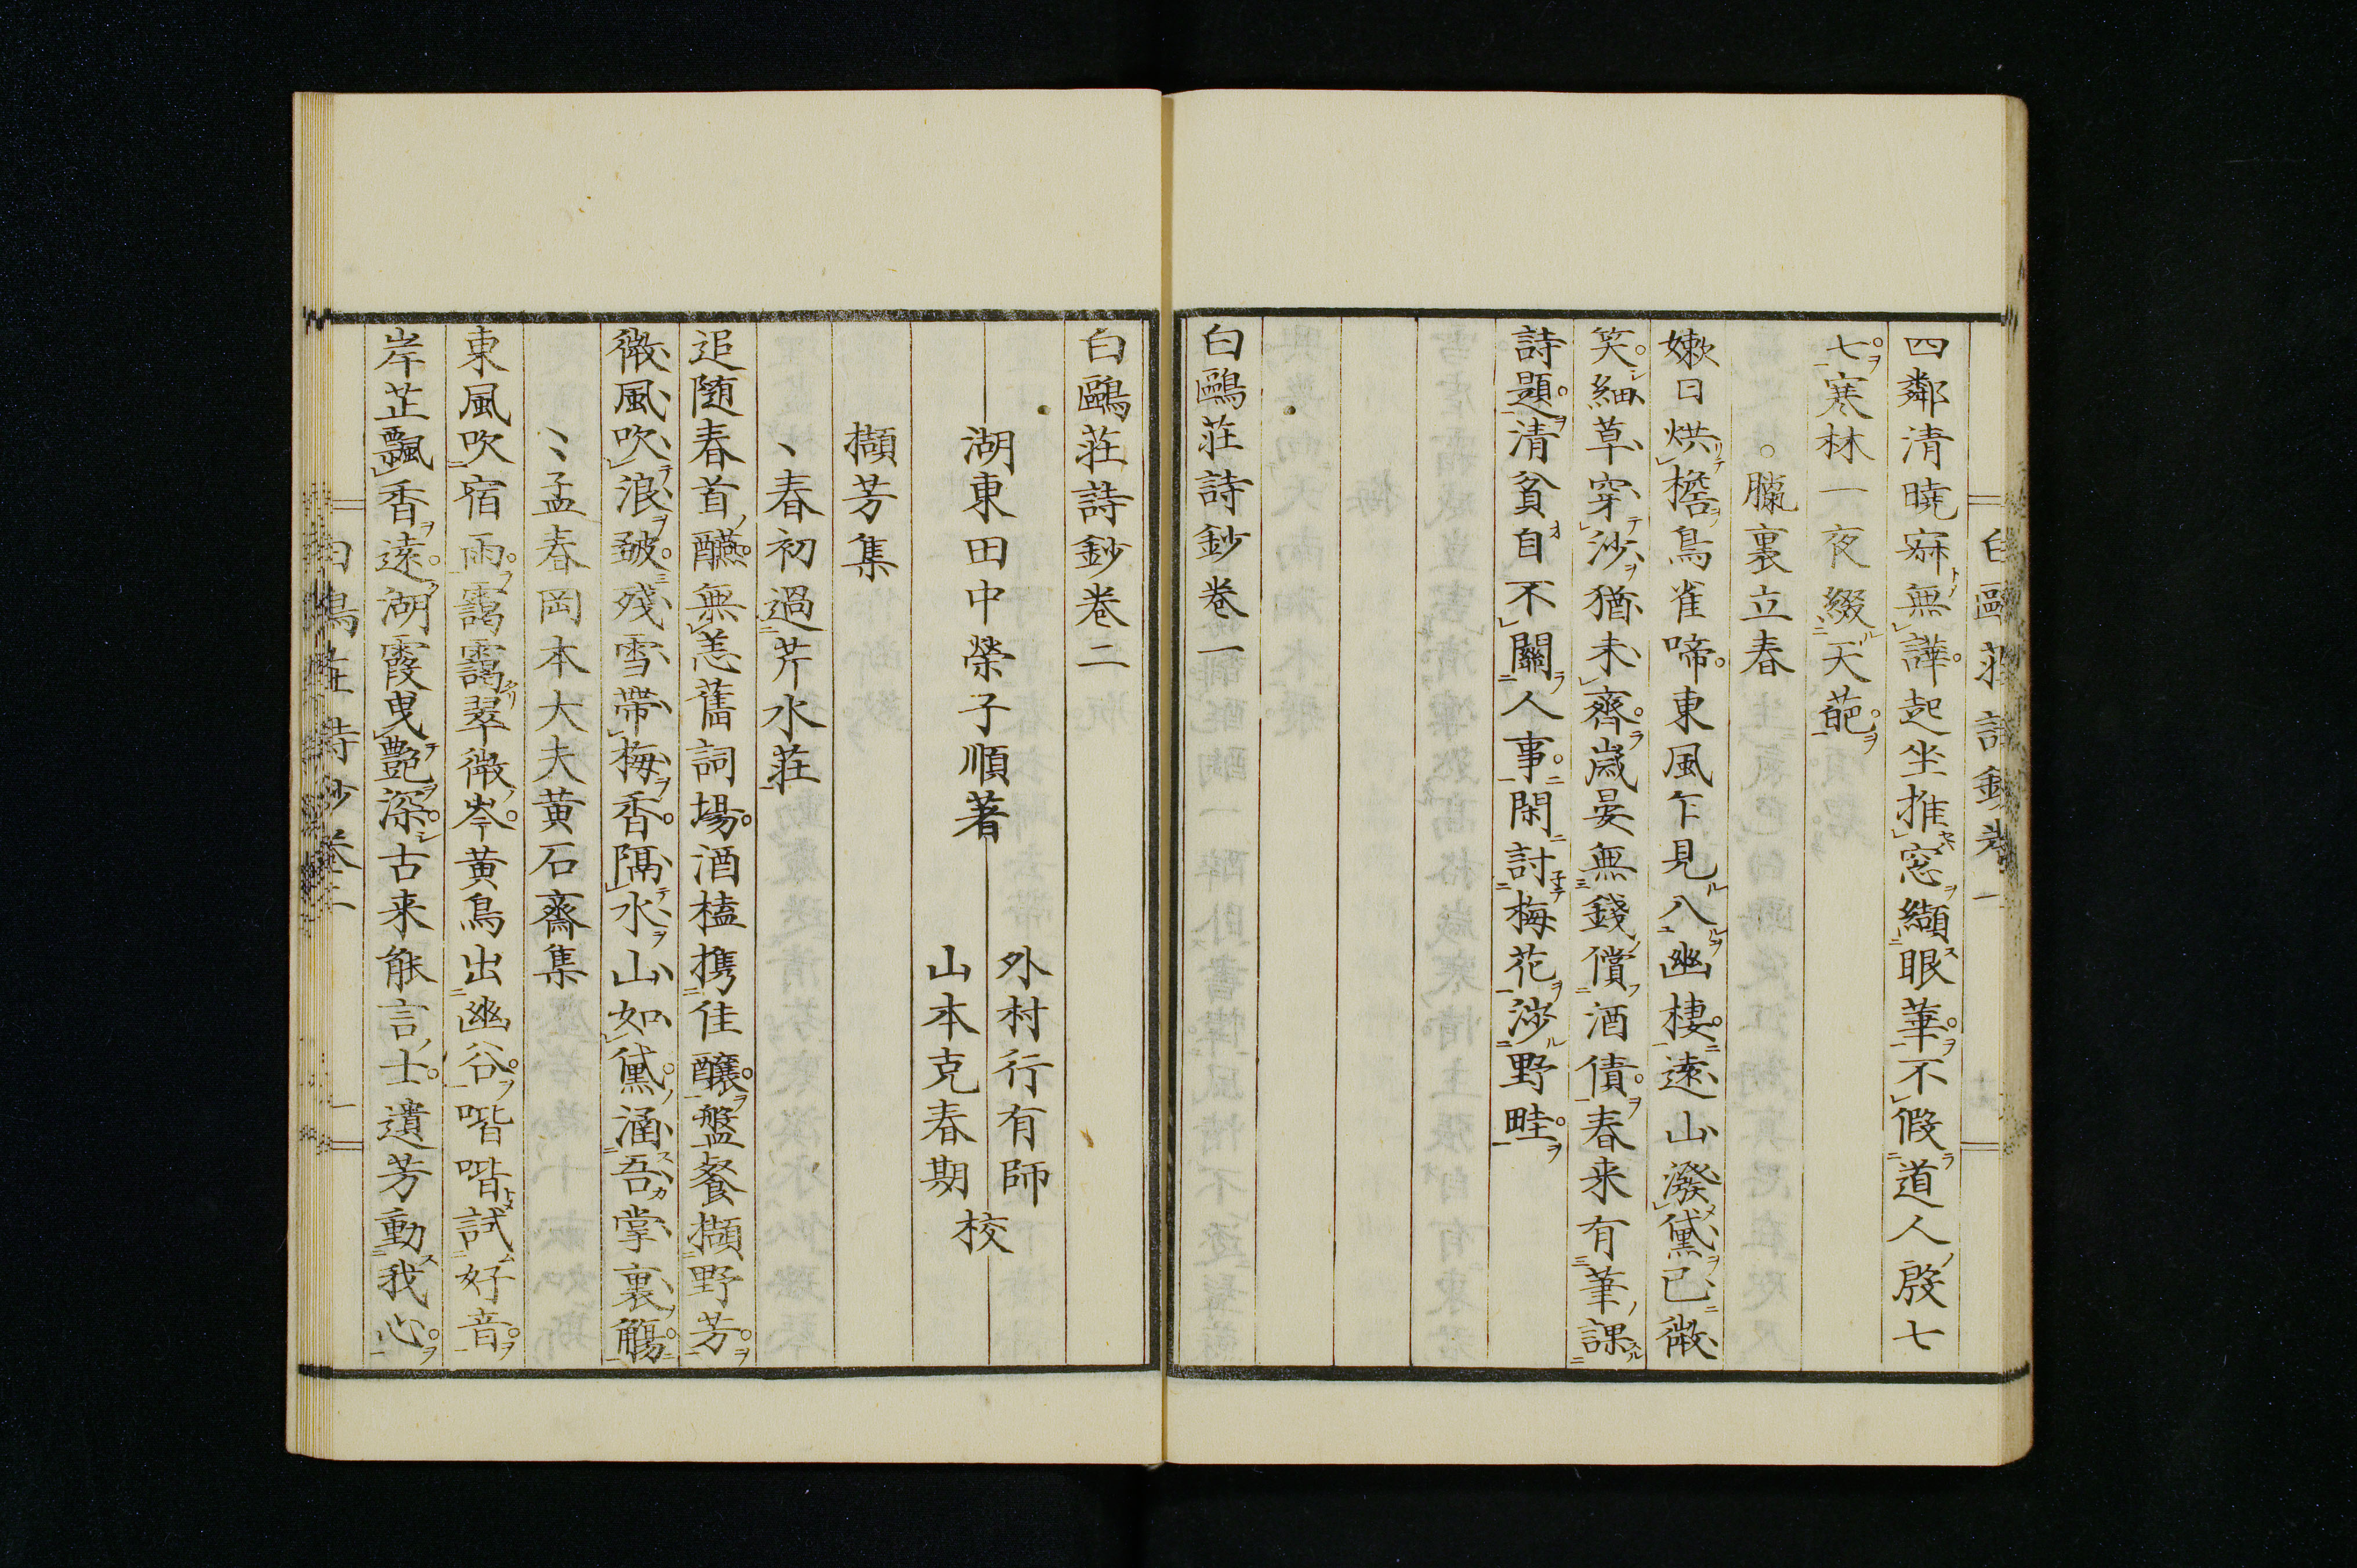 四鄰清曉寐無譁起坐推窓纈眼華不假道人殷七
七寒林一夜綴天葩
。臘裏立春
嫩日烘檐鳥雀啼東風乍見入幽棲遠山潑黛已微
笑細草穿沙猶未齊歲晏無錢償酒債春来有筆課
詩題清貧自不關人事閑討梅花渉野畦
白鷗莊詩鈔巻一
白鷗莊詩鈔巻二
湖東田中榮子順著
外村行有師
山本克春期
校
擷芳集
丶春初過芹水莊
追随春首醼無恙舊詞場酒榼携佳釀盤餐擷野芳
微風吹浪皴殘雪帶梅香隔水山如黛涵吾掌裏觴
丶孟春岡本大夫黄石齋集
東風吹宿雨靄靄翠微岑黄鳥出幽谷喈喈試好音
岸芷飄香遠湖霞曳艶深古来能言士遺芳動我心